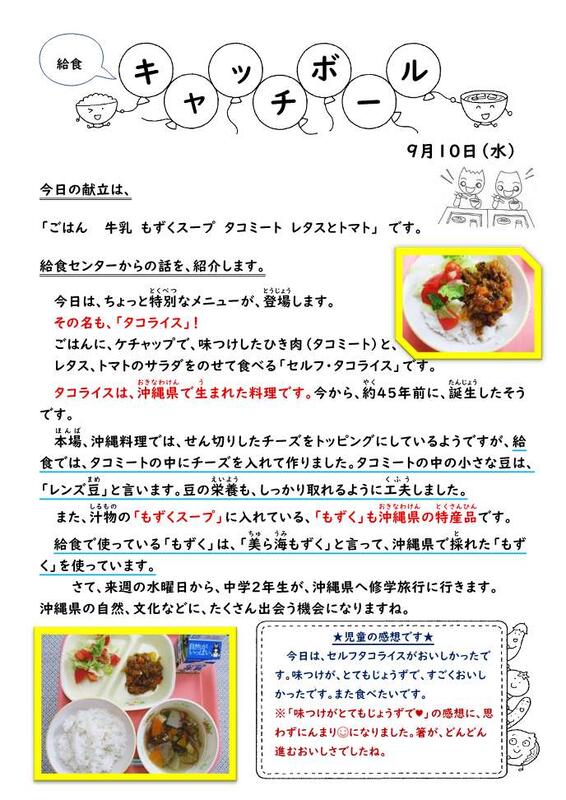 給食
キャッチボール
9月10日（水）
今日の献立は、
「ごはん　牛乳　もずくスープ　タコミート　レタスとトマト」　です。
給食センターからの話を、紹介します。
今日は、ちょっと特別なメニューが、登場します。
その名も、「タコライス」！
ごはんに、ケチャップで、味つけしたひき肉（タコミート）と、
レタス、トマトのサラダをのせて食べる「セルフ・タコライス」です。
タコライスは、沖縄県で生まれた料理です。今から、約45年前に、誕生したそう
です。
本場、沖縄料理では、せん切りしたチーズをトッピングにしているようですが、給
食では、タコミートの中にチーズを入れて作りました。タコミートの中の小さな豆は、
「レンズ豆」と言います。豆の栄養も、しっかり取れるように工夫しました。
また、汁物の「もずくスープ」に入れている、「もずく」も沖縄県の特産品です。
給食で使っている「もずく」は、「美ら海もずく」と言って、沖縄県で採れた「もず
く」を使っています。
さて、来週の水曜日から、中学2年生が、沖縄県へ修学旅行に行きます。
沖縄県の自然、文化などに、たくさん出会う機会になりますね。
★児童の感想です★
今日は、セルフタコライスがおいしかったで
す。味つけが、とてもじょうずで、すごくおいし
かったです。また食べたいです。
※「味つけがとてもじょうずで♥」の感想に、思
わずにんまり☺になりました。箸が、どんどん
進むおいしさでしたね。